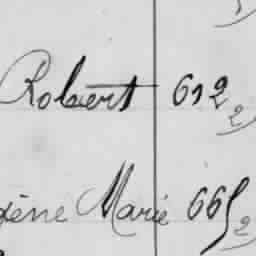 Robert 612 2
gène Marie 665 2